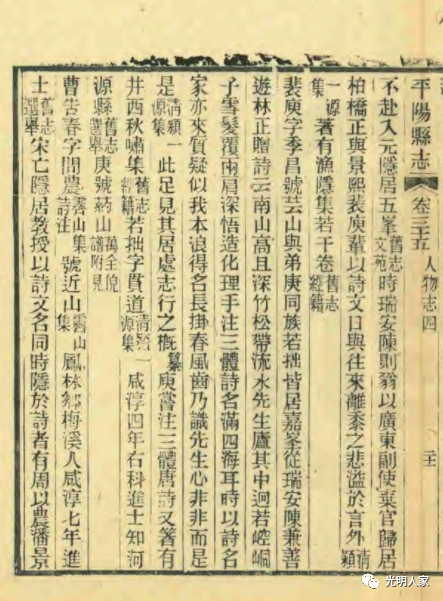 平陽縣志 卷三十五 人物志四
不赴入元隱居五峯舊志文苑時瑞安陳則翁以廣東副使棄官歸居
柏橋正與景熙裴庾輩以詩文日與往來離黍之悲溢於言外清潁
一源集著有漁隱集若干卷舊志經籍
裴庾字季昌號芸山與弟庚同族若拙皆居嘉峯從瑞安陳兼善
遊林正贈詩云南山高且深竹松帶流水先生廬其中迥若崆峒
子雪髮覆兩肩深悟造化理手注三體詩名滿四海耳時以詩名
家亦來質疑似我本浪得名長掛春風齒乃識先生心非非而是
是清潁一源集此足見其居處志行之槪纂庾嘗注三體唐詩又著有
井西秋嘯集舊志經籍若拙字貫道清潁一源集咸淳四年右科進士知河
源縣舊志選舉庚號葯山萬全倪譜附見
曹告春字閏農霽山集詩注號近山霽山集鳳林鄉梅溪人咸淳七年進
士舊志選舉宋亡隱居教授以詩文名同時隱於詩者有周以農潘景
光明人家